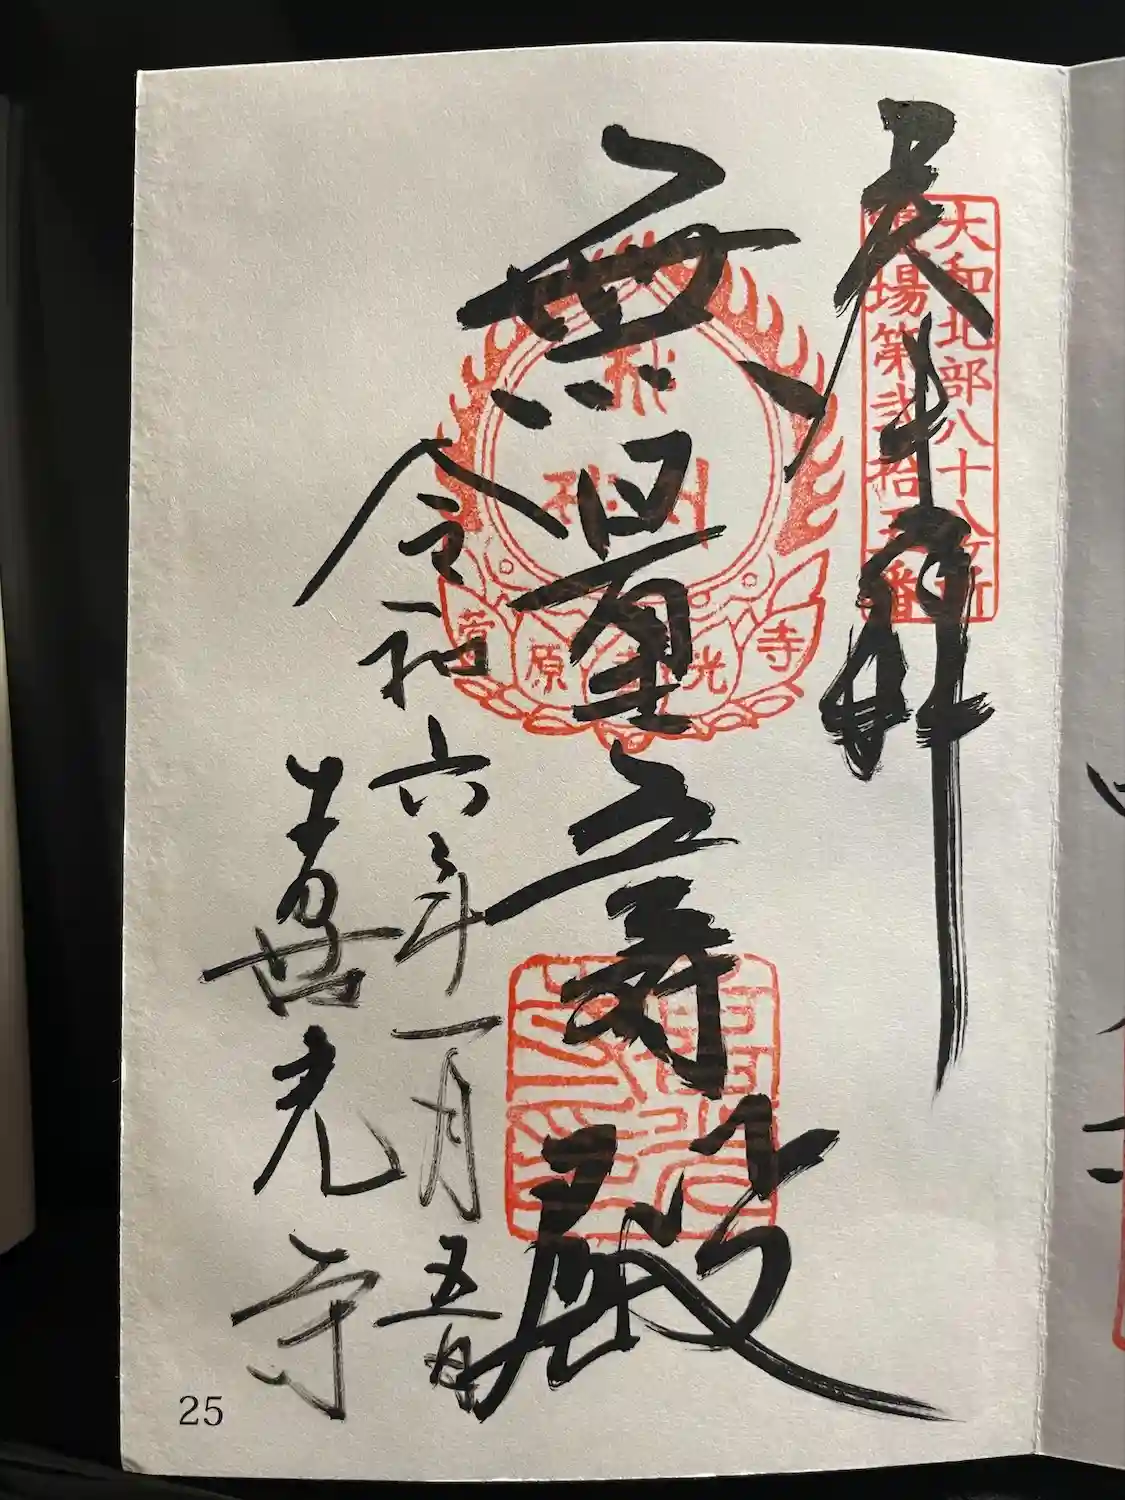 奉拝
大和北部八十八ヶ所
霊場第弐拾五番
無量寿殿
菅原喜光寺
令和六年一月五日
喜光寺
25